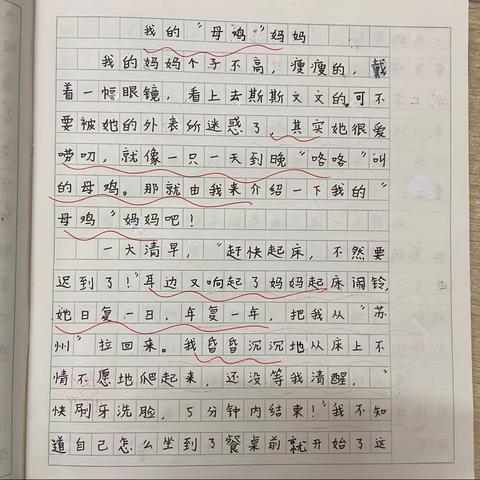 我的“母鸡”妈妈
我的妈妈个子不高，瘦瘦的，戴
着一幅眼镜，看上去斯斯文文的。可不
要被她的外表所迷惑了，其实她很爱
唠叨，就像一只一天到晚“咯咯”叫
的母鸡。那就由我来介绍一下我的“
母鸡”妈妈吧！
一大清早，“赶快起床，不然要
迟到了！”耳边又响起了妈妈起床闹铃，
她日复一日，年复一年，把我从“苏
州”拉回来。我昏昏沉沉地从床上不
情不愿地爬起来，还没等我清醒，“
快刷牙洗脸，5分钟内结束！”我不知
道自己怎么坐到了餐桌前就开始了这